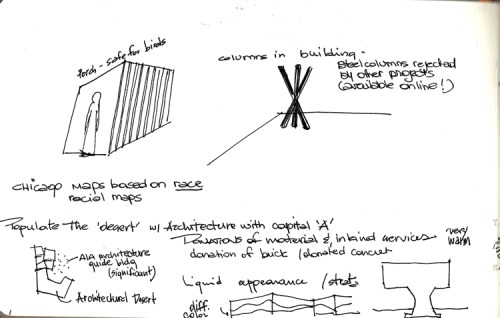 Porch - safe for birds
columns in building -
steel columns rejected
by other projects
(available online!)
Chicago maps based on race
racial maps
Populate the 'desert' w/ Architecture with capital 'A'
Donations of material & inkind services
donation of brick / donated
'very'
warm
AIA architecture
guide bldg
(significant)
Architectural Desert
Liquid appearance / strats
diff.
color